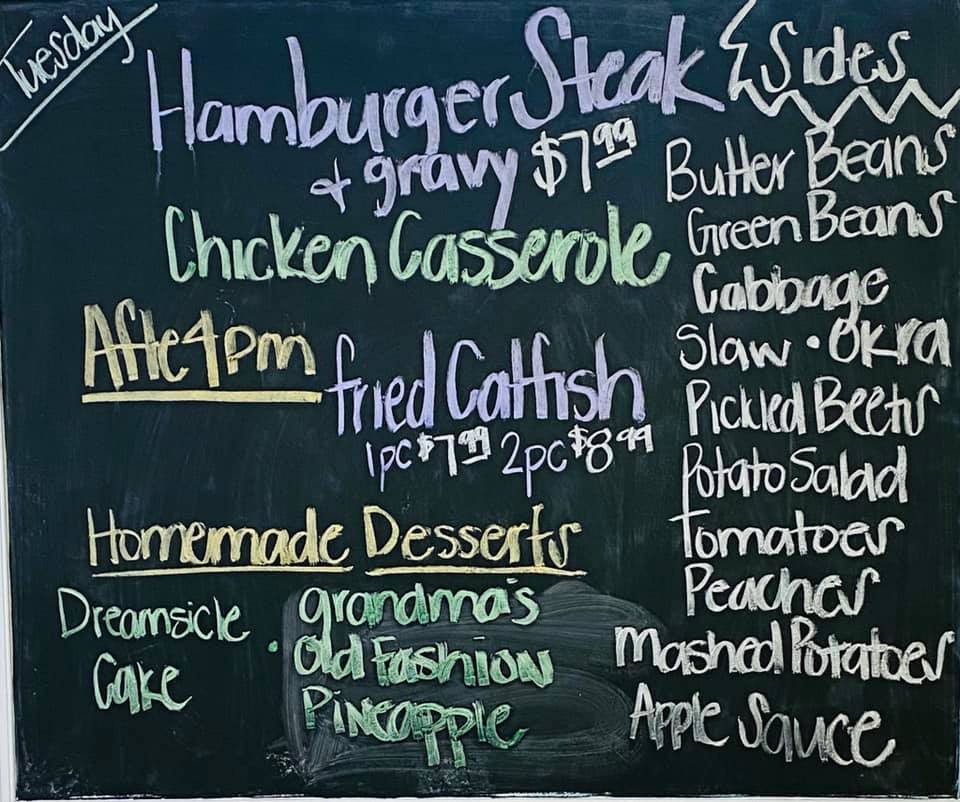 Tuesday
Hamburger Steak
+ gravy $7.99
Chicken Casserole
Afte 4pm
fried Catfish
1pc $7.99 2pc $8.99
Homemade Desserts
Dreamsicle
Cake
• grandma's
Old Fashion
Pineapple
Sides
Butter Beans
Green Beans
Cabbage
Slaw • Okra
Pickled Beets
Potato Salad
Tomatoes
Peaches
Mashed Potatoes
Apple Sauce